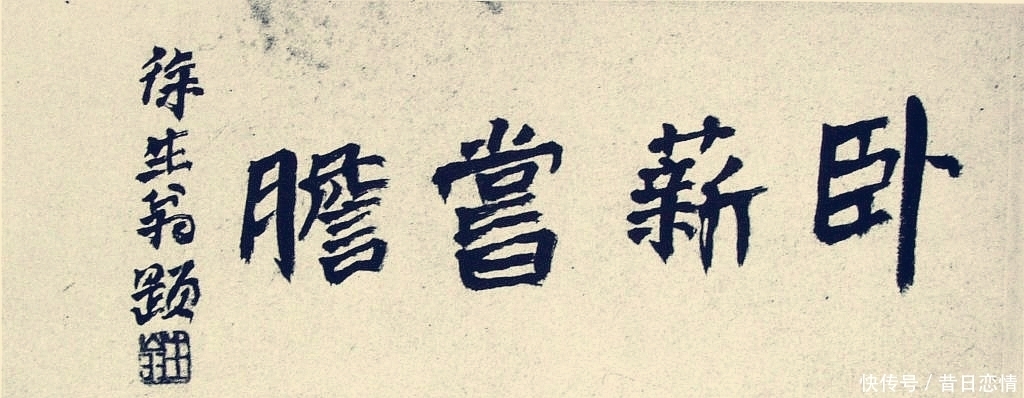 卧薪嘗膽
徐生翁題
快传号/昔日恋情